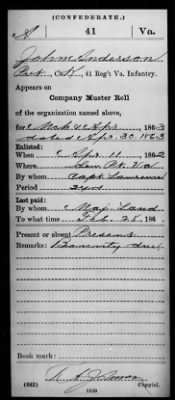 (CONFEDERATE.)
A 41 Va.
John Anderson
Pvt, Co. 41 Reg't Va. Infantry.
Appears on
Company Muster Roll
of the organization named above,
for Mch & Apr, 1863
dated Apr. 30, 1863
Enlisted:
When Apr. 11, 1862
Where Va
By whom Capt. Lawrence
Period 3 yrs
Last paid:
By whom Maj. Land
To what time Feb. 28, 186
Present or absent Present
Remarks: Bounty due
Book mark:
(642) Copyist.